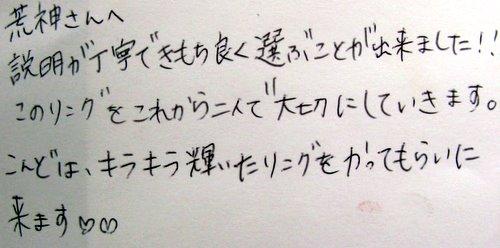 荒神さんへ
説明が丁寧できもち良く選ぶことが出来ました!!
このリングをこれから二人で大切にしていきます。
こんどは、キラキラ輝いたリングをかってもらいに
来ます♡♡